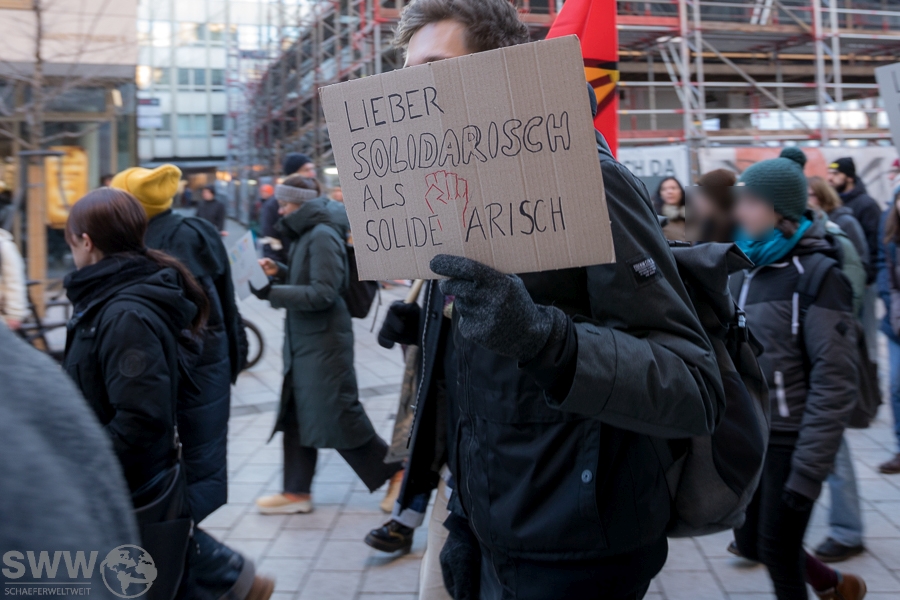 LIEBER
SOLIDARISCH
ALS
SOLIDE ARISCH
CH DA
SWW
SCHAEFERWELTWEIT